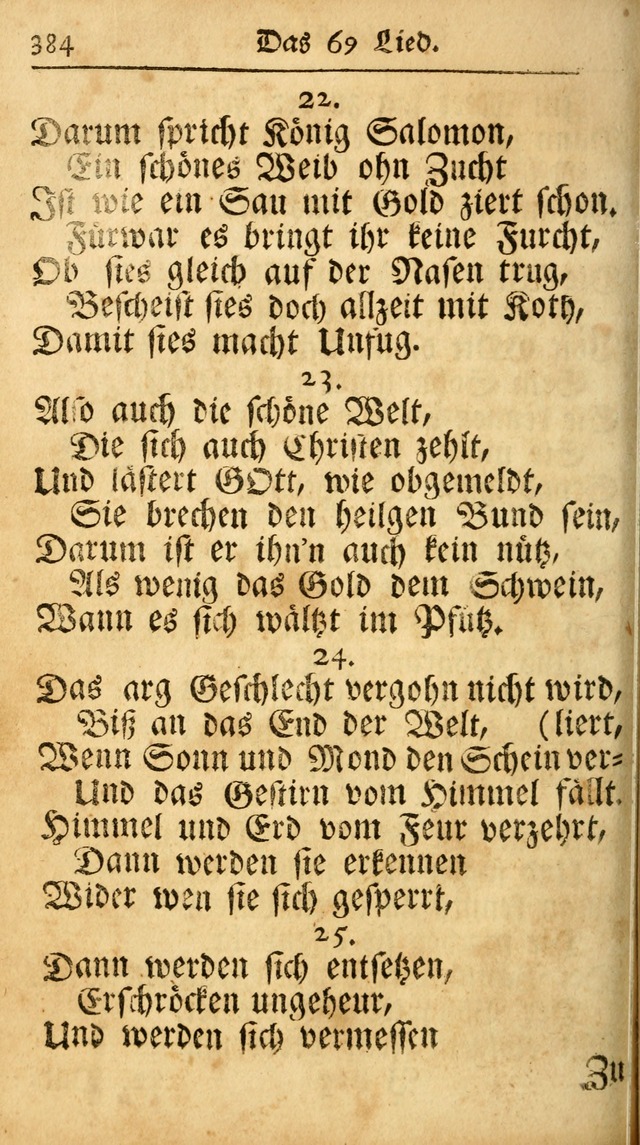 384 Das 69 Lied.
22.
Darum spricht König Salomon,
Ein schönes Weib ohn Zucht
Ist wie ein Sau mit Gold ziert schon.
Fürwar es bringt ihr keine Furcht,
Ob sies gleich auf der Nasen trug,
Bescheist sies doch allzeit mit Koth,
Damit sies macht Unfug.
23.
Also auch die schöne Welt,
Die sich auch Christen zehlt,
Und lästert GOtt, wie obgemeldt,
Sie brechen den heilgen Bund sein,
Darum ist er ihn'n auch kein nütz,
Als wenig das Gold dem Schwein,
Wann es sich wältzt im Pfütz.
24.
Das arg Geschlecht vergohn nicht wird,
Biß an das End der Welt, (liert,
Wenn Sonn und Mond den Schein ver-
Und das Gestirn vom Himmel fällt.
Himmel und Erd vom Feur verzehrt,
Dann werden sie erkennen
Wider wen sie sich gesperrt,
25.
Dann werden sich entsetzen,
Erschröcken ungeheur,
Und werden sich vermessen
Zu